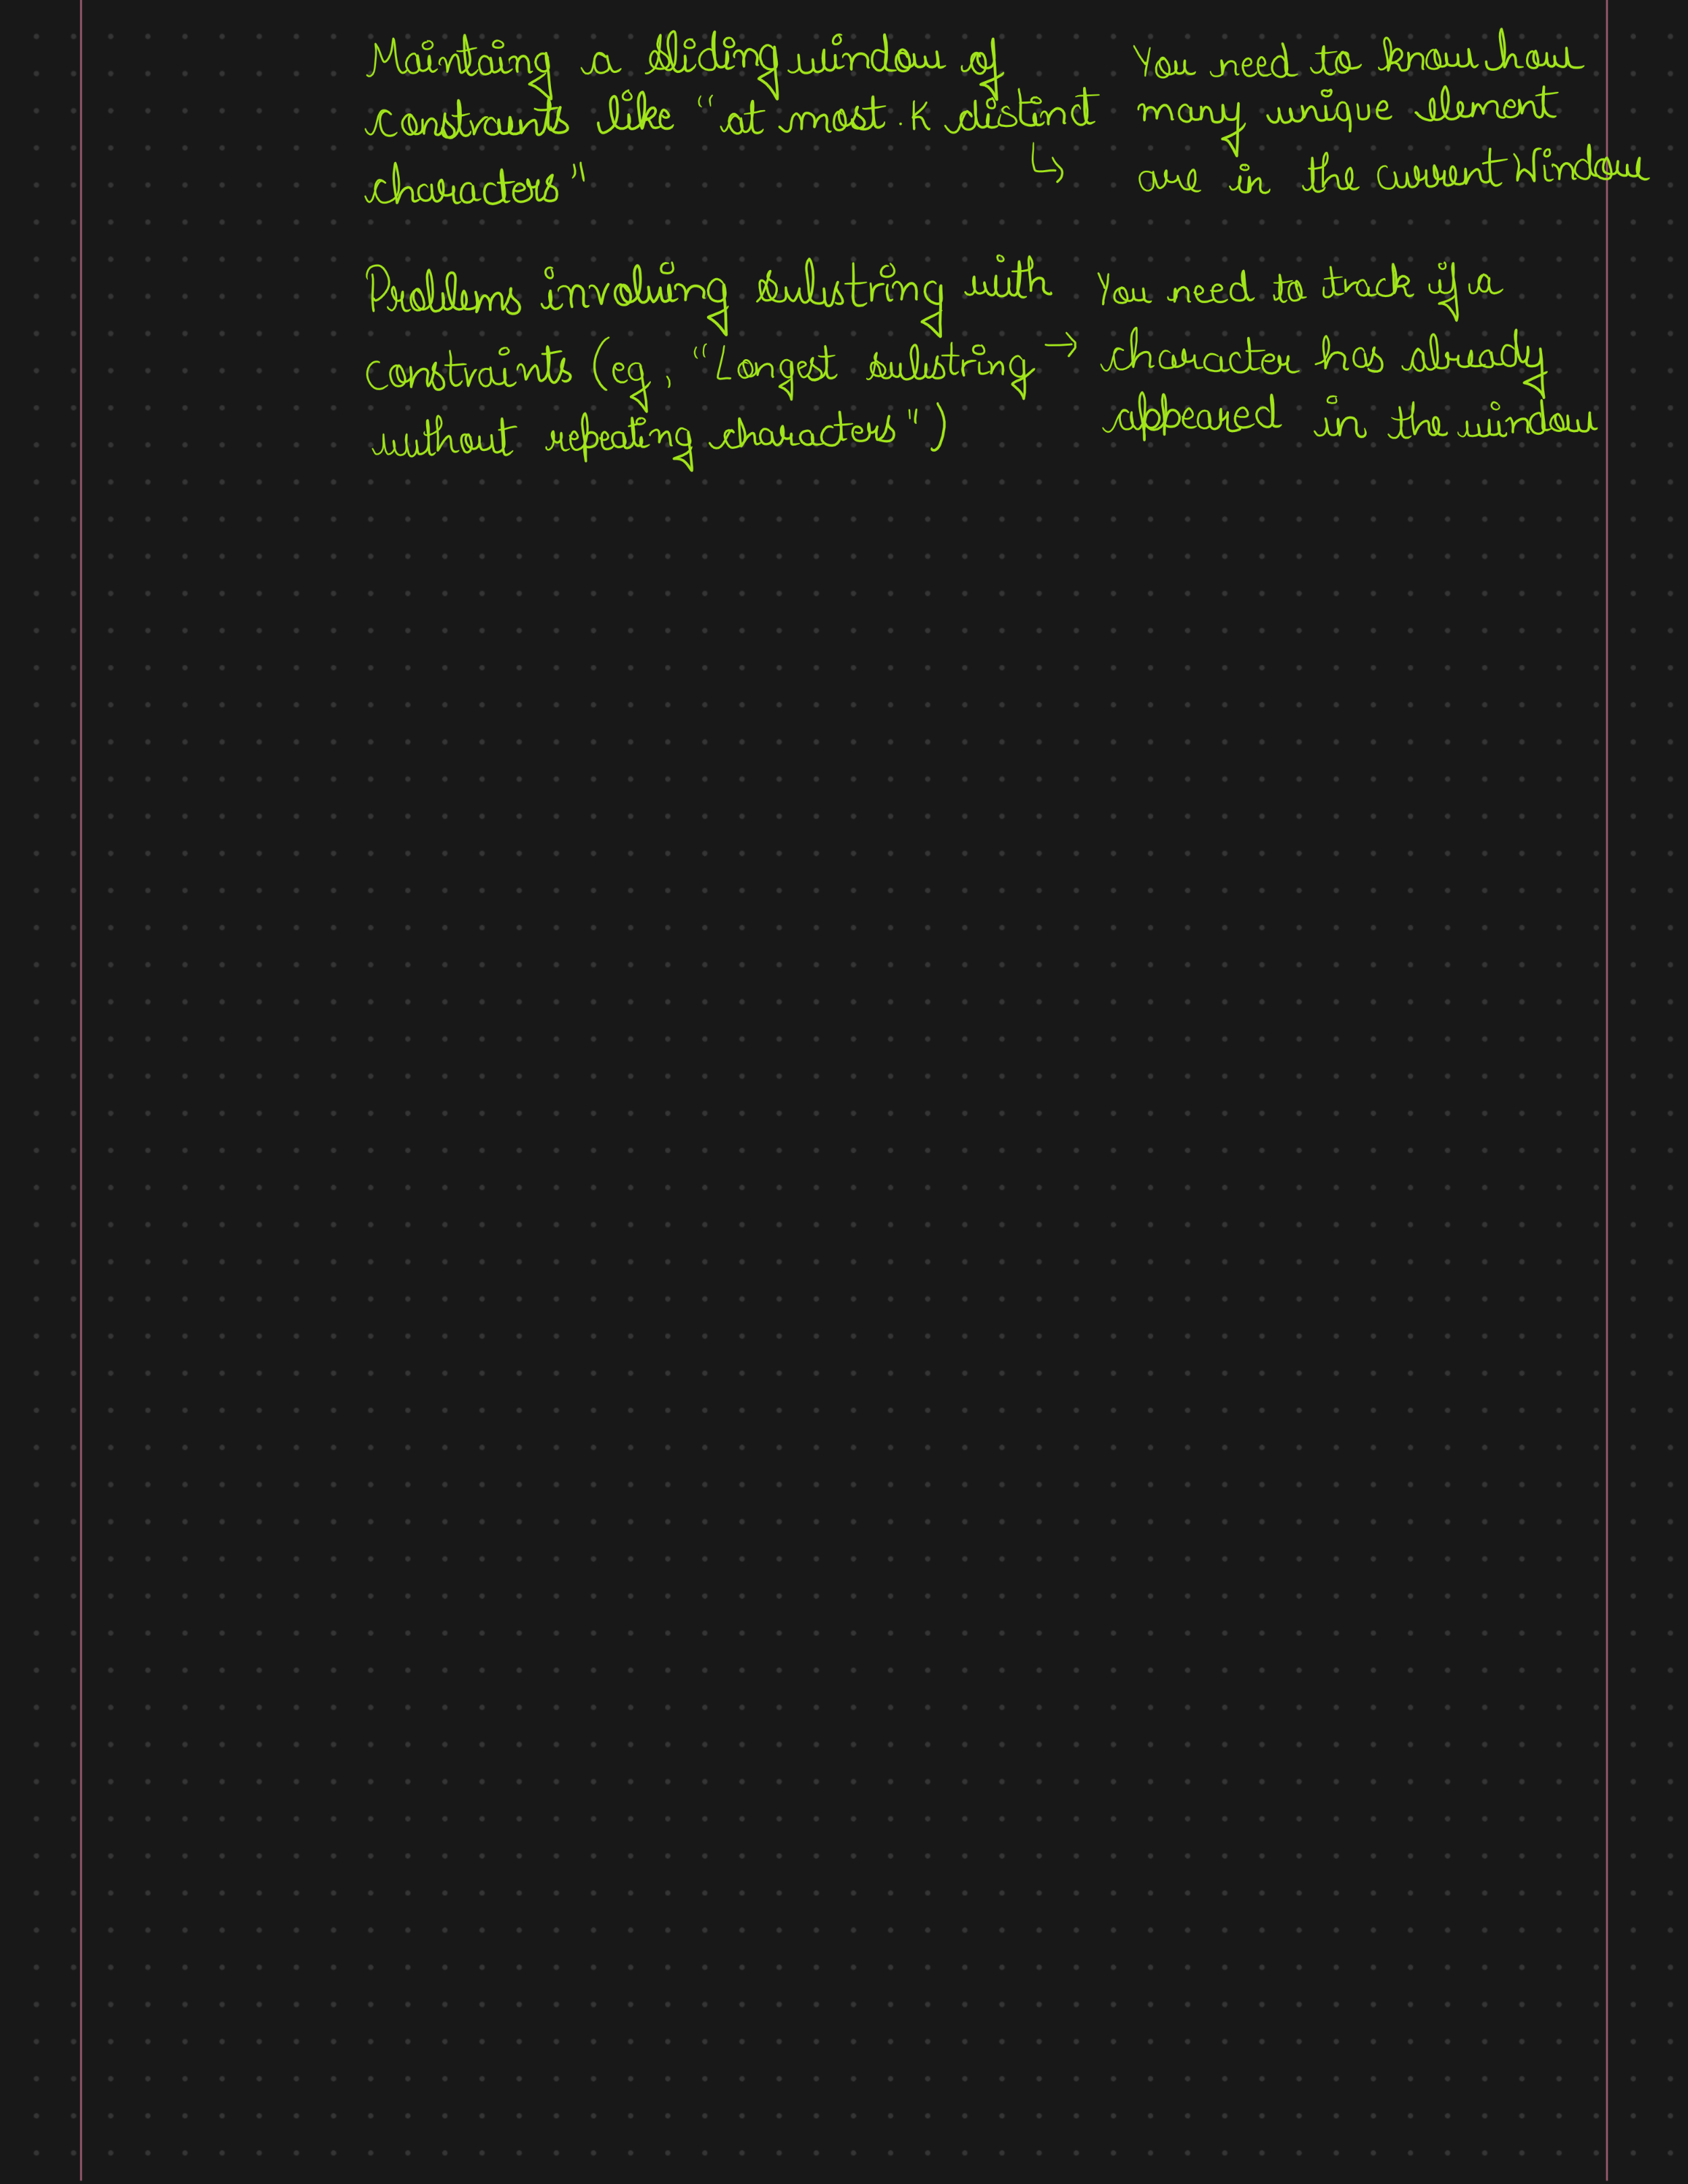 Maintaing a sliding window of
constraints like "at most. K distinct
characters"
↳ You need to know how
many unique element
are in the current Window
Problems involving substring with
constraints (eg, "Longest substring
without repeating characters")
→ You need to track if a
character has already
appeared in the window